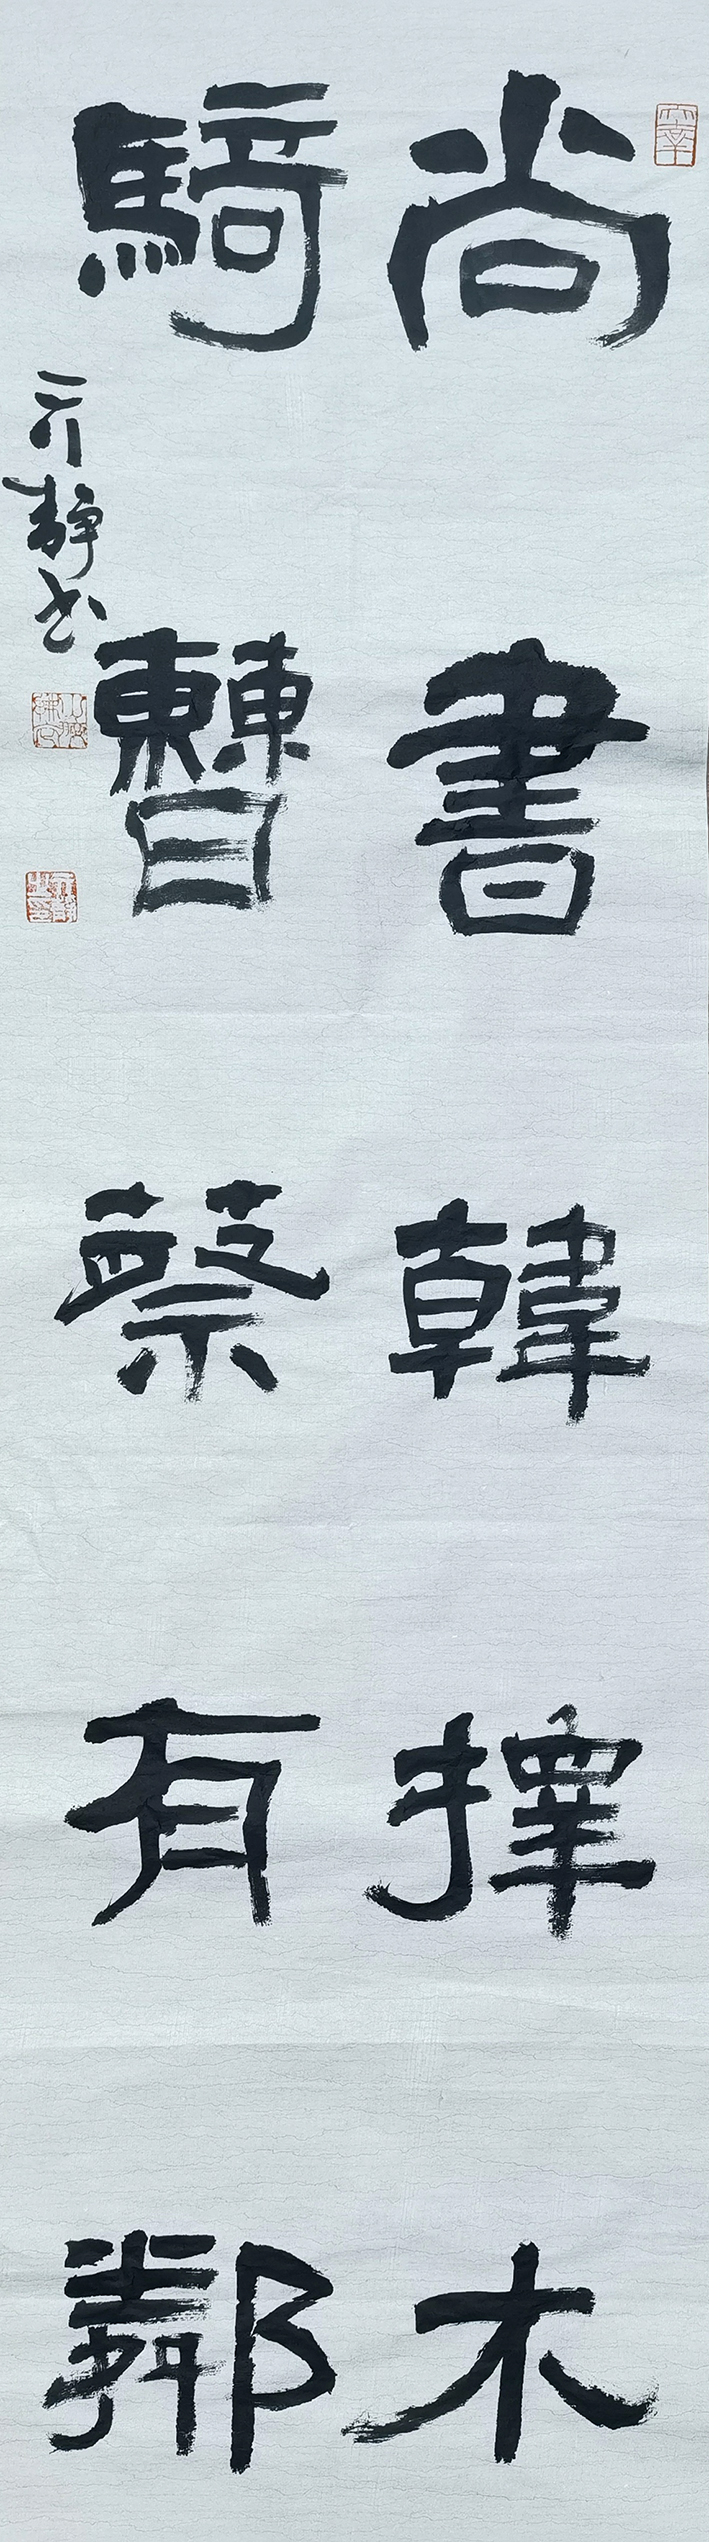 尚書韓擇木
騎曹蔡有鄰
亓靜书